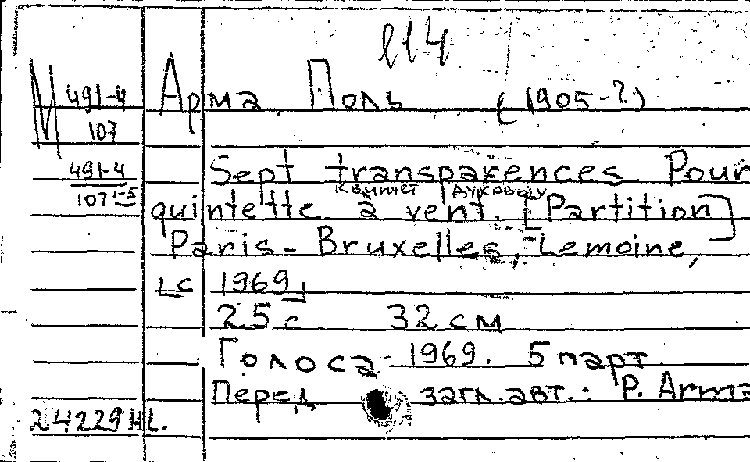 114
М 491-4 Арма Поль (1905-?)
107
491-4 Sept transparences Pour
107 1-5 квинтет духовому
quintette à vent. [Partition]
Paris-Bruxelles, Lemoine,
LC 1969
25 с 32 см
Голоса 1969. 5 парт
Перед загл. авт.: P. Arma
24229 НЦ.